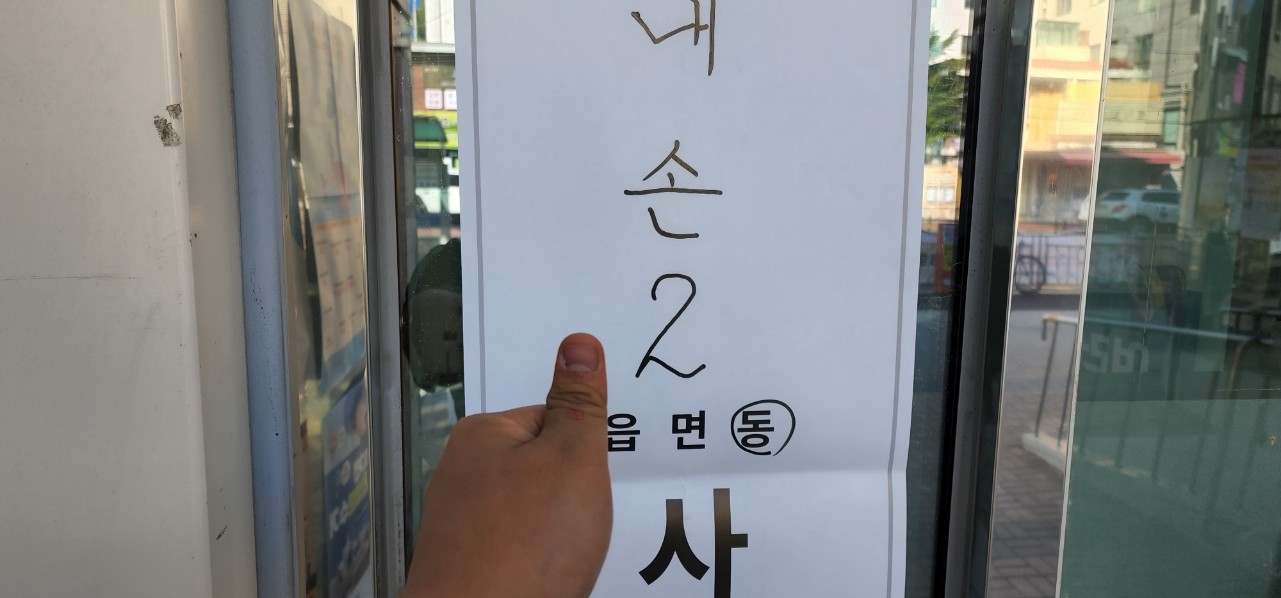 내
손
2
읍 면 동
사